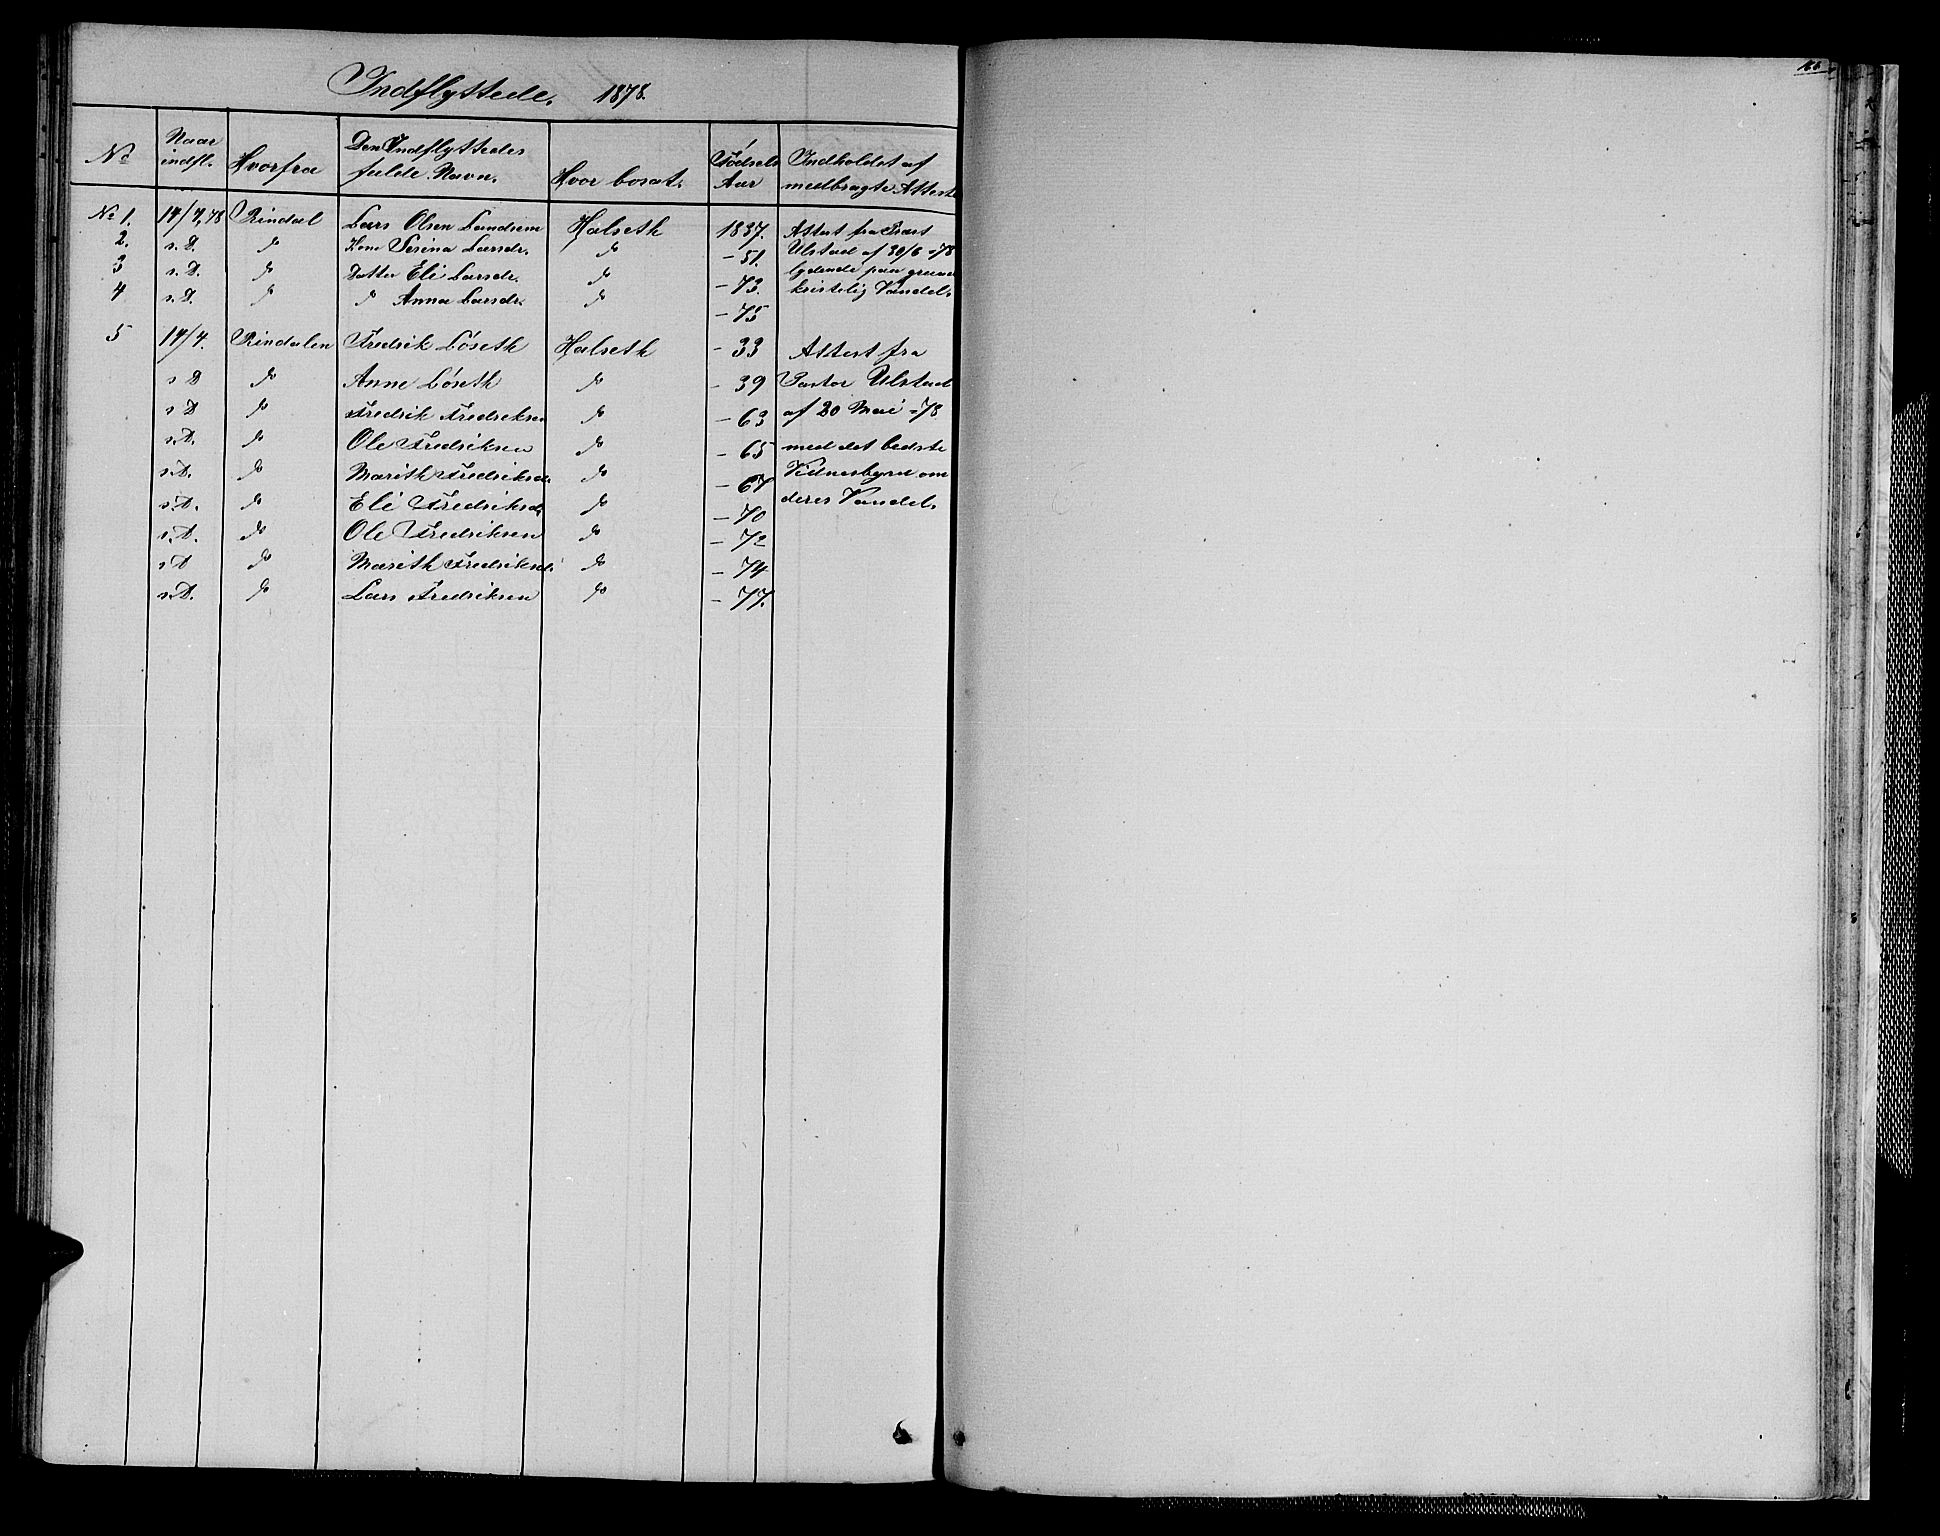 Indflyttede. 1878.
No | Naar indfl. | Hvorfra | Den Indflyttedes fulde Navn. | Hvor bosat. | Fødsels Aar | Indholdet af medbragte Attest
No 1. | 14/7,78 | Rindal | Lars Olsen Landsem | Halseth | 1837. | Attest fra Præst
2. | s.D. | do | Kone Serina Larsdr. | do | - 51. | Ulstad af 30/6 -78
3 | s.D. | do | Datter Eli Larsdr. | do | - 73. | lydende paa
4 | s.D. | do | do Anna Larsdr. | do | - 75 | kristelig Vandel.
5 | 14/7. | Rindalen | Fredrik Løseth | Halseth | - 33 | Attest fra
s D | do | Anne Løseth | do | - 39 | Pastor Ulstad
s D | do | Fredrik Fredriksen | do | - 63 | af 20 Mai -78
s.D. | do | Ole Fredriksen | do | - 65 | med det bedste
s.D. | do | Marith Fredriksd. | do | - 67 | Vidnesbyrd om
s.D. | do | Eli Fredriksd. | do | - 70 | deres Vandel.
s.D. | do | Ole Fredriksen | do | - 72
s D | do | Marith Fredriksd. | do | - 74
s.D. | do | Lars Fredriksen | do | - 77.